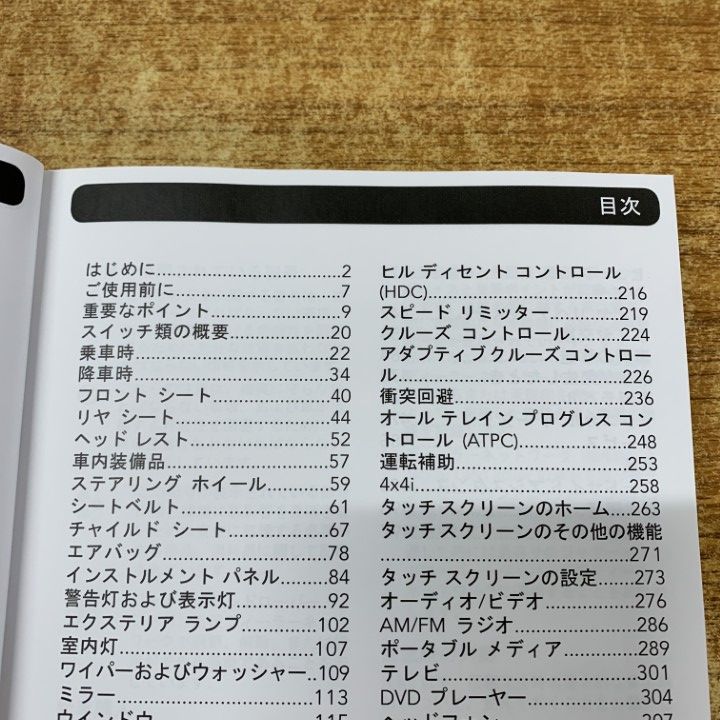 目次
はじめに..............................2
ご使用前に............................7
重要なポイント........................9
スイッチ類の概要.....................20
乗車時...............................22
降車時...............................34
フロント シート......................40
リヤ シート..........................44
ヘッド レスト........................52
車内装備品...........................57
ステアリング ホイール................59
シートベルト.........................61
チャイルド シート....................67
エアバッグ...........................78
インストルメント パネル.......84
警告灯および表示灯.............92
エクステリア ランプ...........102
室内灯..............................107
ワイパーおよびウォッシャー..109
ミラー..............................113
ウインドウ..........................115
ヒル ディセント コントロール
(HDC)..............................216
スピード リミッター...........219
クルーズ コントロール........224
アダプティブクルーズコントロー
ル..................................226
衝突回避............................236
オール テレイン プログレス コン
トロール (ATPC)................248
運転補助............................253
4x4i................................258
タッチスクリーンのホーム....263
タッチスクリーンのその他の機能
....................................271
タッチ スクリーンの設定......273
オーディオ/ビデオ..............276
AM/FM ラジオ....................286
ポータブル メディア...........289
テレビ..............................301
DVD プレーヤー..................304
ヘッドフォン........................307